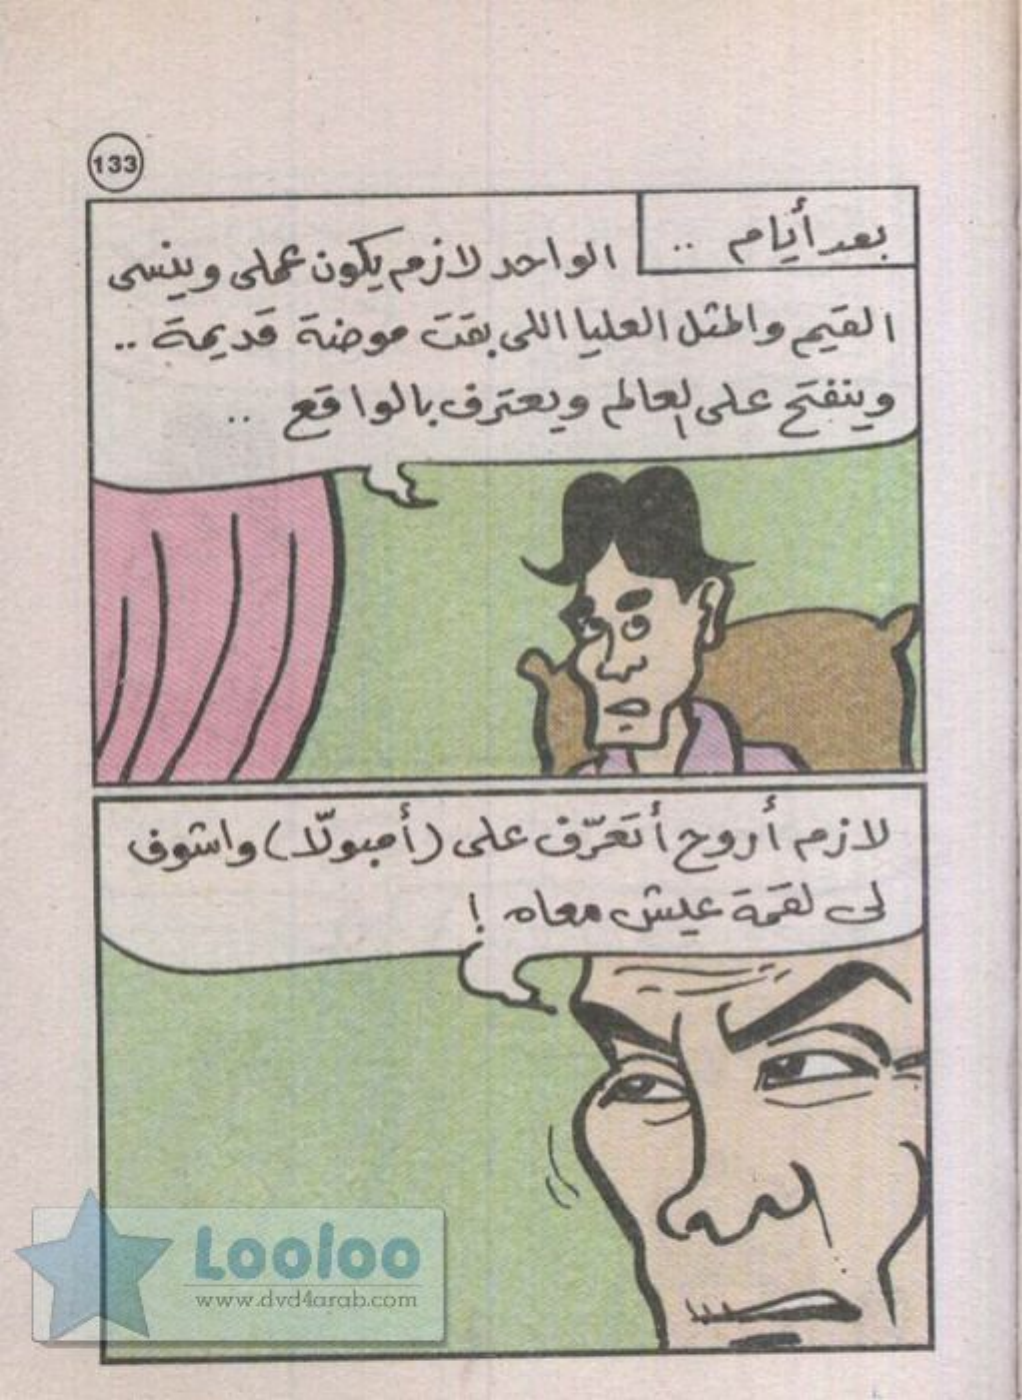 133
بعد أيام ..
الواحد لازم يكون عملى وينسى
القيم والمثل العليا اللى بقت موضة قديمة ..
وينفتح على العالم ويعترف بالواقع ..
لازم أروح أتعرّف على (أمبولّا) واشوف
لى لقمة عيش معاه !
Looloo
www.dvd4arab.com